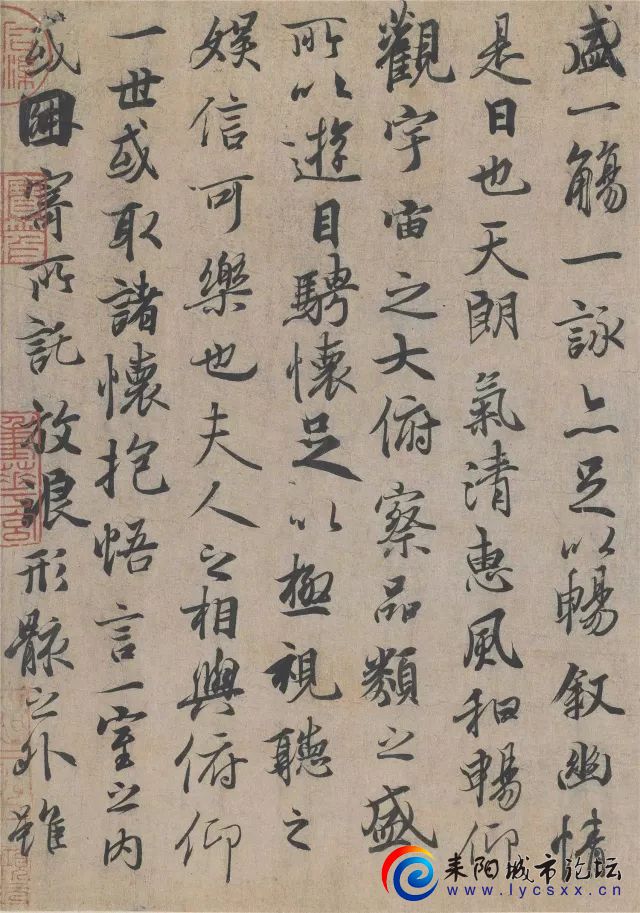 盛一觴一詠亦足以暢叙幽情
是日也天朗氣清惠風和暢仰
觀宇宙之大俯察品類之盛
所以遊目騁懷足以極視聽之
娛信可樂也夫人之相與俯仰
一世或取諸懷抱悟言一室之内
或因寄所託放浪形骸之外雖
耒阳城市论坛
www.lycsxx.cn